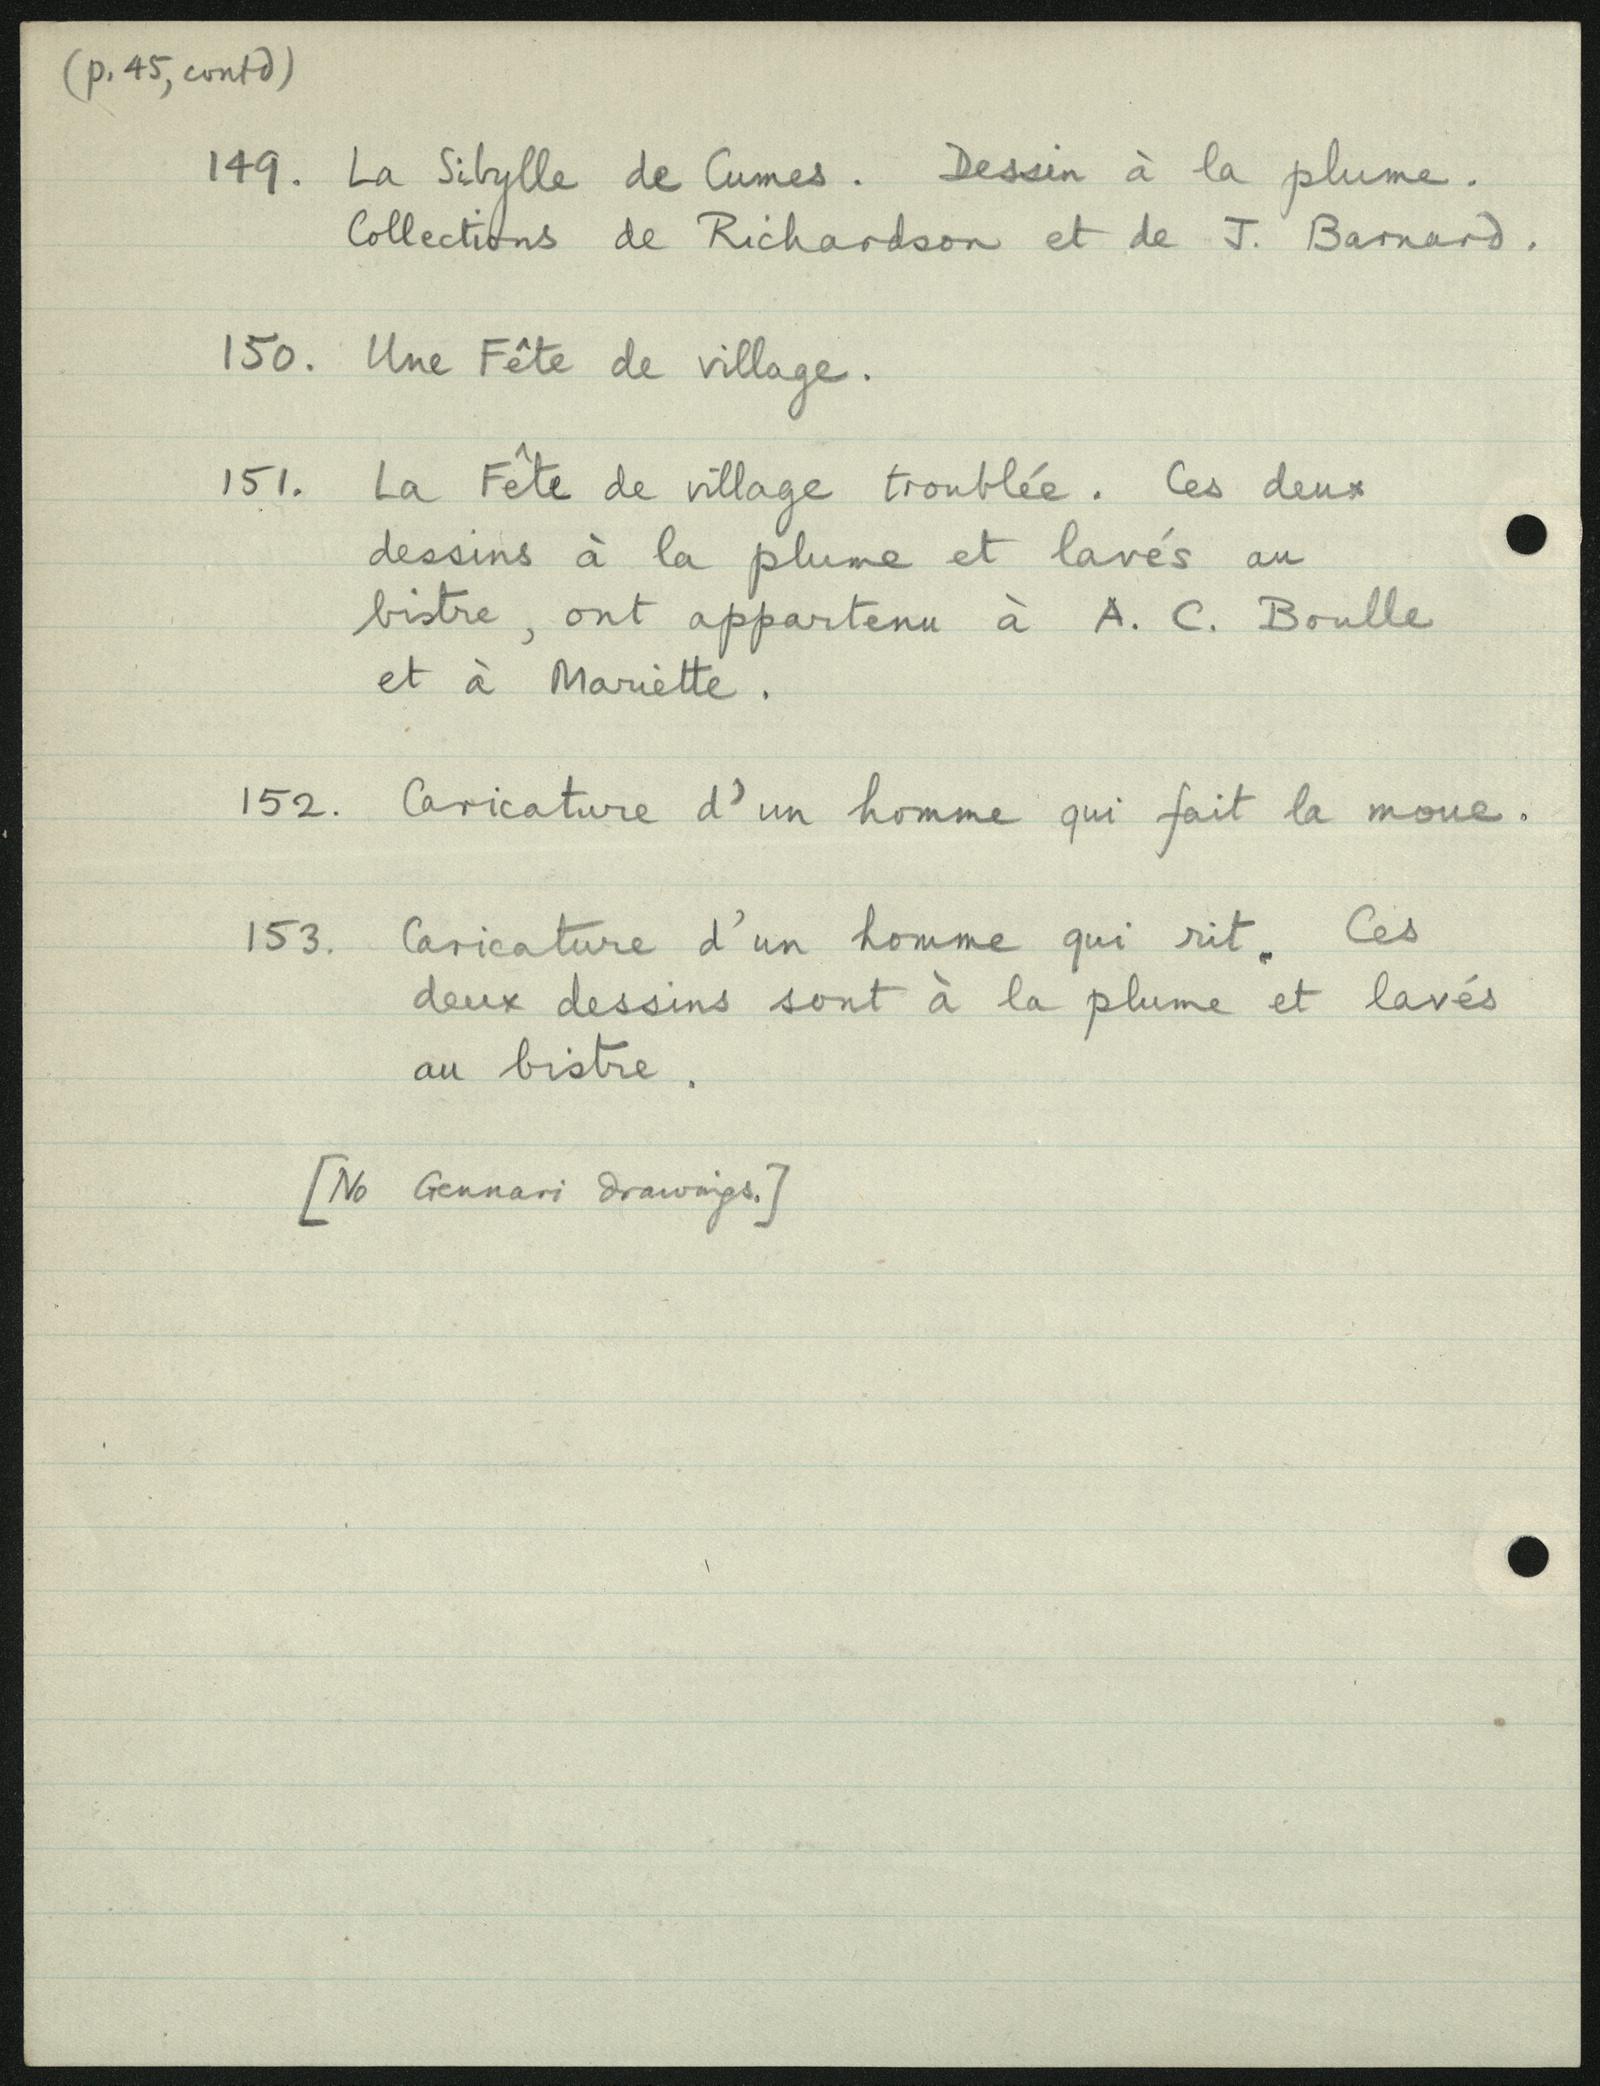 (p. 45, contd)
149. La Sibylle de Cumes. Dessin à la plume.
Collections de Richardson et de J. Barnard.
150. Une Fête de village.
151. La Fête de village troublée. Ces deux
dessins à la plume et lavés au
bistre, ont appartenu à A. C. Boulle
et à Mariette.
152. Caricature d'un homme qui fait la moue.
153. Caricature d'un homme qui rit. Ces
deux dessins sont à la plume et lavés
au bistre.
[No Gennari drawings.]